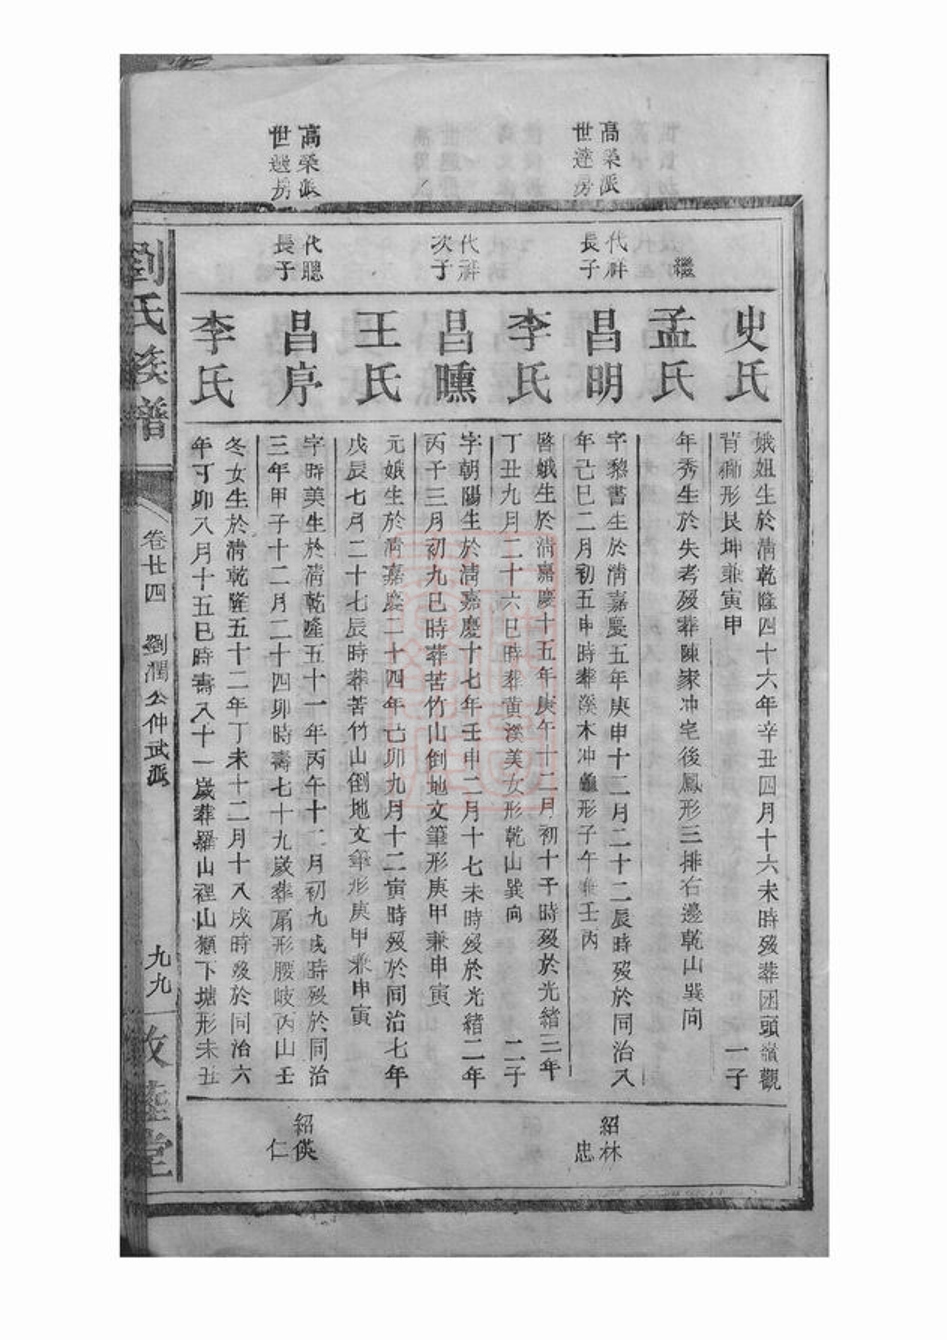 史氏
娥姐生於清乾隆四十六年辛丑四月十六未時歿葬團頭嶺觀
背獅形艮坤兼寅申 一子
繼
孟氏
年秀生於失考歿葬陳家冲宅後鳳形三排右邊乾山巽向
高榮派
世達房
代祥
長子
昌明
字黎書生於清嘉慶五年庚申十二月二十二辰時歿於同治八
年己巳二月初五申時葬溪木冲龜形子午兼壬丙
紹林
忠
李氏
啓娥生於清嘉慶十五年庚午十二月初十子時歿於光緒三年
丁丑九月二十六巳時葬黄溪美女形乾山巽向 二子
代祥
次子
昌曛
字朝陽生於清嘉慶十七年壬申二月十七未時歿於光緒二年
丙子三月初九巳時葬苦竹山倒地文筆形庚甲兼申寅
王氏
元娥生於清嘉慶二十四年己卯九月十二寅時歿於同治七年
戊辰七月二十七辰時葬苦竹山倒地文筆形庚甲兼申寅
高榮派
世選房
代聰
長子
昌序
字時美生於清乾隆五十一年丙午十二月初九戌時歿於同治
三年甲子十二月二十四卯時壽七十九歲葬扇形腰岐丙山壬
紹偀
仁
李氏
冬女生於清乾隆五十二年丁未十二月十八戌時歿於同治六
年丁卯八月十五巳時壽八十一歲葬羅山裡山獺下塘形未丑
劉氏族譜
卷廿四 劉潤公仲武派
九九
敦睦堂